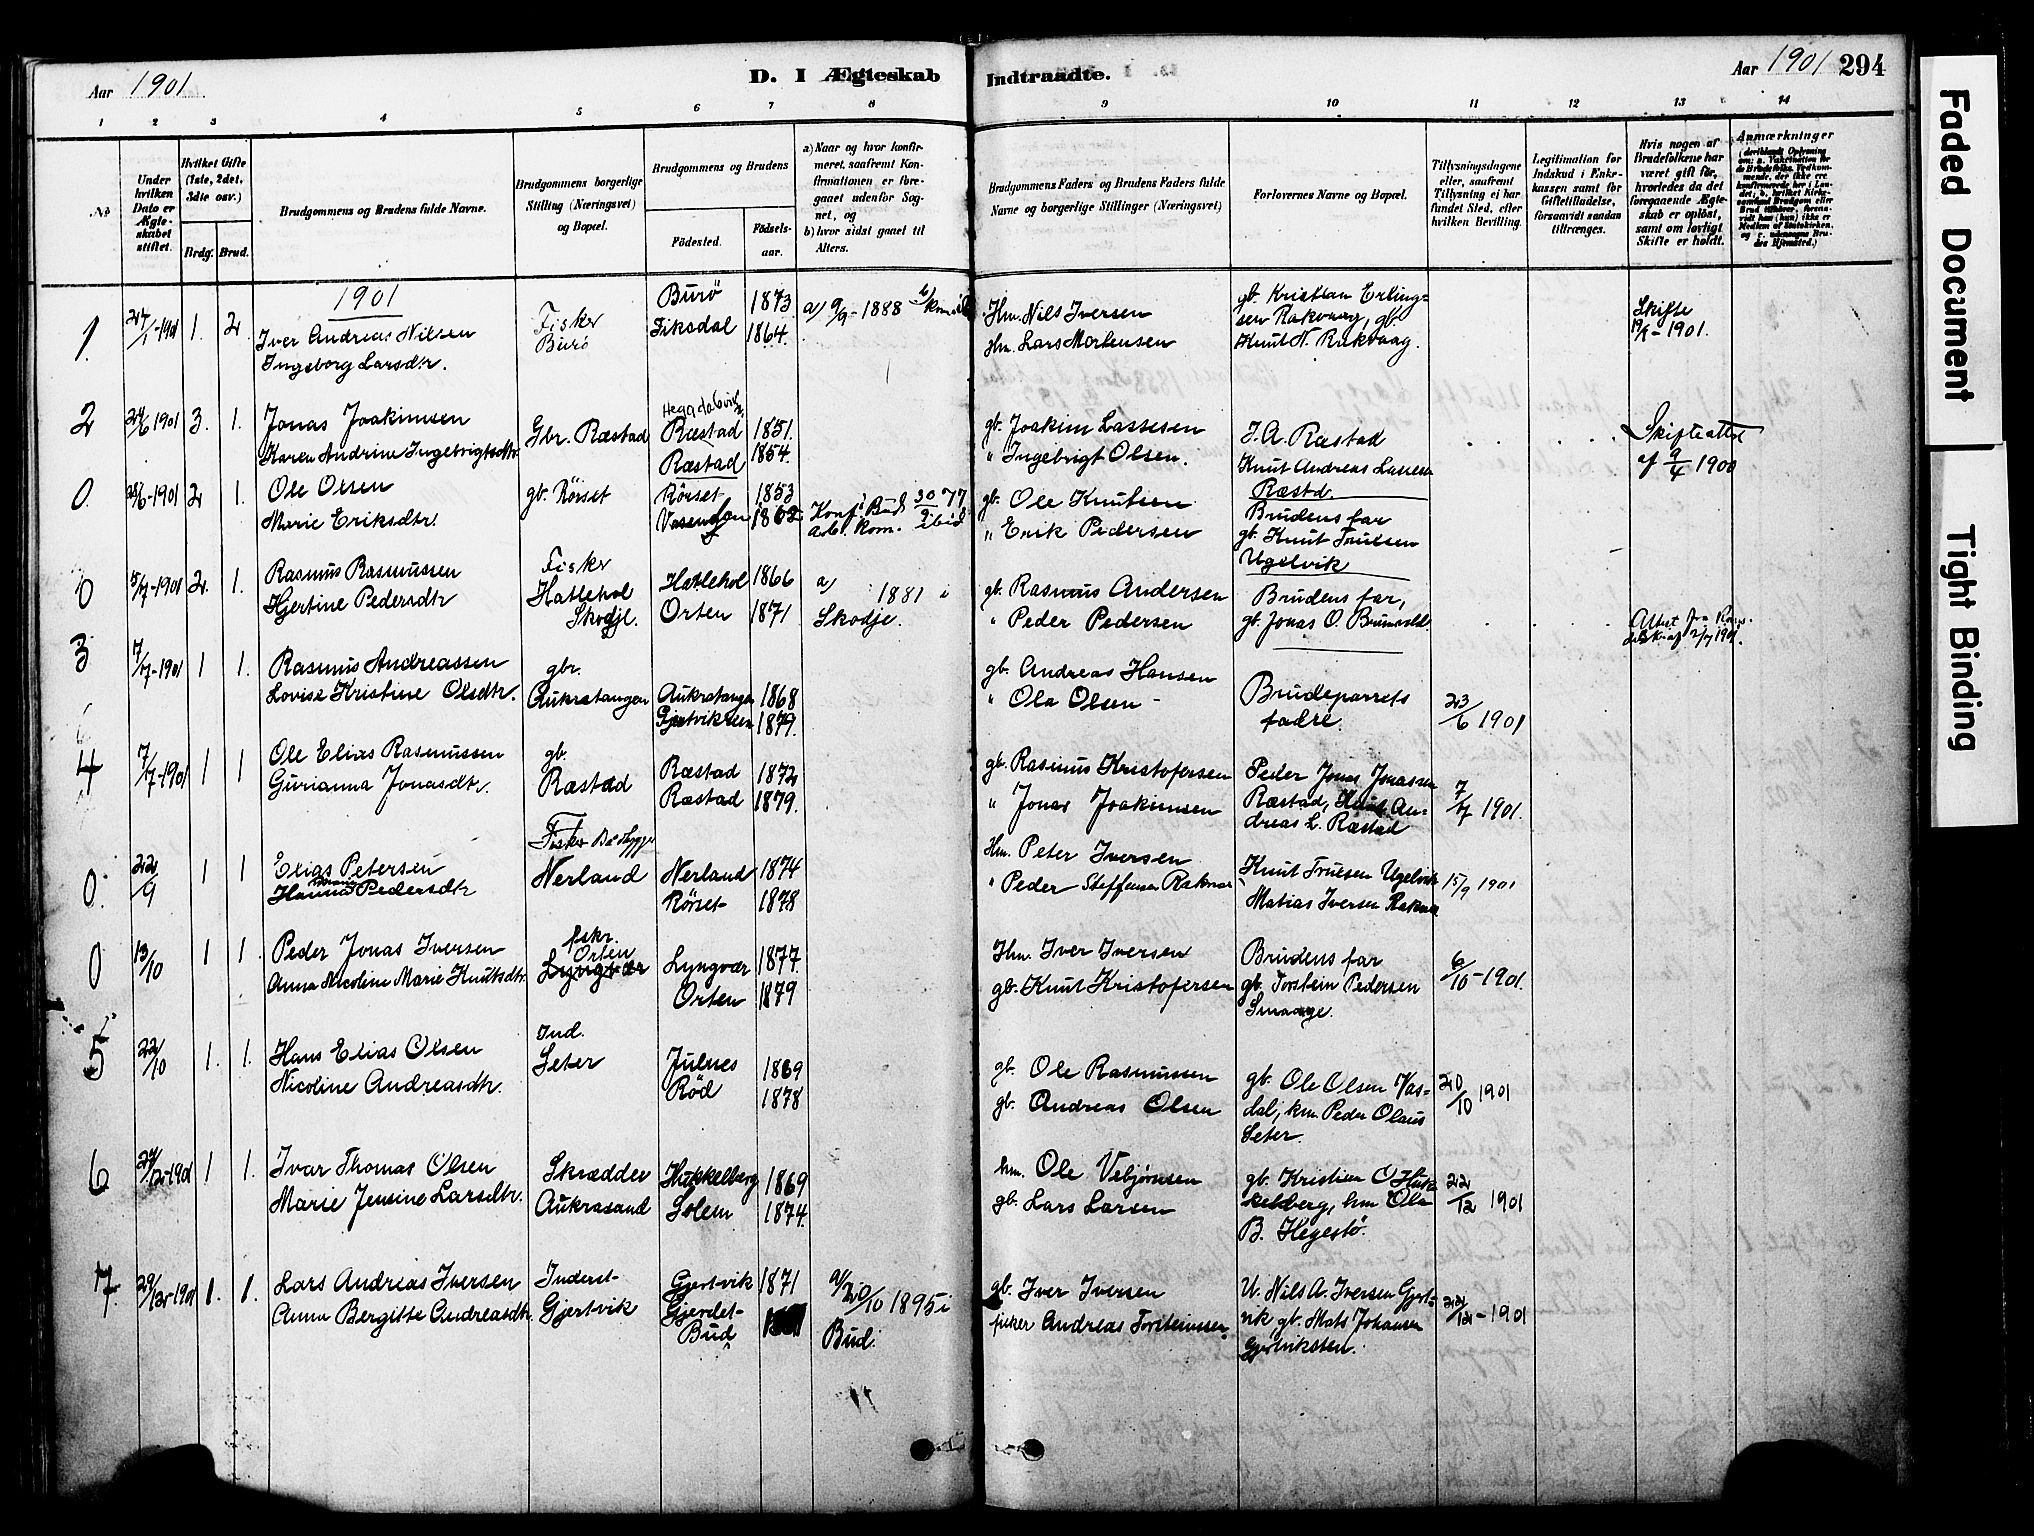 Aar 1901
D. I Ægteskab Indtraadte.
Aar 1901 294
1 2 3 4 5 6 7 8 9 10 11 12 13 14
No
Under hvilken Dato er Ægteskabet stiftet.
Hvilket Gifte (1ste, 2det, 3die osv.)
Brdg. Brud.
Brudgommens og Brudens fulde Navne.
Brudgommens borgerlige Stilling (Næringsvei) og Bopæl.
Brudgommens og Brudens
Födested. Födsels-aar.
a) Naar og hvor konfirmeret, saafremt Konfirmationen er foregaaet udenfor Sognet, og
b) hvor sidst gaaet til Alters.
Brudgommens Faders og Brudens Faders fulde Navne og borgerlige Stillinger (Næringsvei)
Forlovernes Navne og Bopæl.
Tillysningsdagene eller, saafremt Tillysning ei har fundet Sted, efter hvilken Bevilling.
Legitimation for Indskud i Enkekassen samt for Giftetilladelse, forsaavidt saadan tiltrænges.
Hvis nogen af Brudefolkene har været gift för, hvorledes da det foregaaende Ægteskab er oplöst, samt om lovligt Skifte er holdt.
Anmærkninger
1901
1. 24/1-1901 1. 2 Iver Andreas Nilsen Fisker Burö Burö 1873 a) 9/9-1888 Hm. Nils Iversen gb. Kristian Erlingsen Rakvaag, gb. Skifte
Ingeborg Larsdtr. Fiksdal 1864. Hm. Lars Mortensen Knut N. Rakvaag. 1901.
2 24/6 1901 3. 1. Jonas Joakimsen Gbr. Ræstad Ræstad 1851. gb. Joakim Lassesen J. A. Ræstad Skifteattest
Karen Andrine Ingebrigtsdtr. Ræstad 1854. " Ingebrigt Olsen. Knut Andreas Lassesen Ræstd. af 9/4 1900
0 1901 2 1. Ole Olsen gb. Rörset Rörset 1853 gb. Ole Knutsen Brudens far
Marie Eriksdtr. 1862 Konf. i Bud 30/9 77 " Erik Pedersen gb. Knut Truesen Ugelvik
0 5/7-1901 2. 1. Rasmus Rasmussen Fisker Hatlehol Skodje. Hatlehol 1866 a) 1881 i gb. Rasmus Andersen Brudens far,
Hjertine Pedersdtr Orten 1871 Skodje. " Peder Pedersen gb. Jonas O. Attest fra 1901.
3 7/7-1901 1 1. Rasmus Andreassen gbr. Aukratangen Aukratangen 1868 gb. Andreas Hansen Brudeparrets fædre. 23/6 1901
Lovise Kristine Olsdtr. 1879. " Ola Olsen
4 7/7-1901 1 1 Ole Elias Rasmussen gb. Ræstad Ræstad 1872 gb. Rasmus Kristofersen Peder Jonas Jonassen 7/7 1901.
Gurianna Jonasdtr. Ræstad 1879. " Jonas Joakimsen Ræstad, Knut Andreas L. Ræstad
0. 22/9 1 1 Elias Petersen Fisker Nerland Nerland 1874 Hm. Peter Iversen Knut Truesen Ugelvik 15/9 1901
Pedersdtr Rörset 1878 " Peder Steffensen Matias Iversen
0 13/10 1 1 Peder Jonas Iversen fskr. Orten Lyngvær Lyngvær 1877. Hm. Iver Iversen Brudens far 6/10-1901.
Anna Nicoline Marie Knutsdtr. Orten 1879 gb. Knut Kristofersen gb. Torstein Pedersen Smaage.
5 22/10 1. 1. Hans Elias Olsen Ind. Seter Julnes 1869 gb. Ole Rasmussen gb. Ole Olsen Vasdal, hm. Peder Olaus Seter. 20/10 1901
Nicoline Andreasdtr. Röd 1878 gb. Andreas Olsen
6 1901 1 1. Ivar Thomas Olsen Skrædder Hukkelberg 1869 hm. Ole Vebjörnsen gb. Kristian O. Hukkelberg, hm. Ola B. Hegestö. 22/12 1901
Marie Jensine Larsdtr. Aukrasand Solem 1874. gb. Lars Larsen
7. 29/12-1901 1. 1. Lars Andreas Iversen Inderst Gjertvik Gjertvik 1871 a) 20/10 1895 i Bud. gb. Iver Iversen U. Nils A. Iversen Gjertvik, gb. Mats Johansen Gjertviksten. 22/12-1901
Anna Bergitte Andreasdtr. Bud fisker Andreas Torsteinsen.
Faded Document
Tight Binding